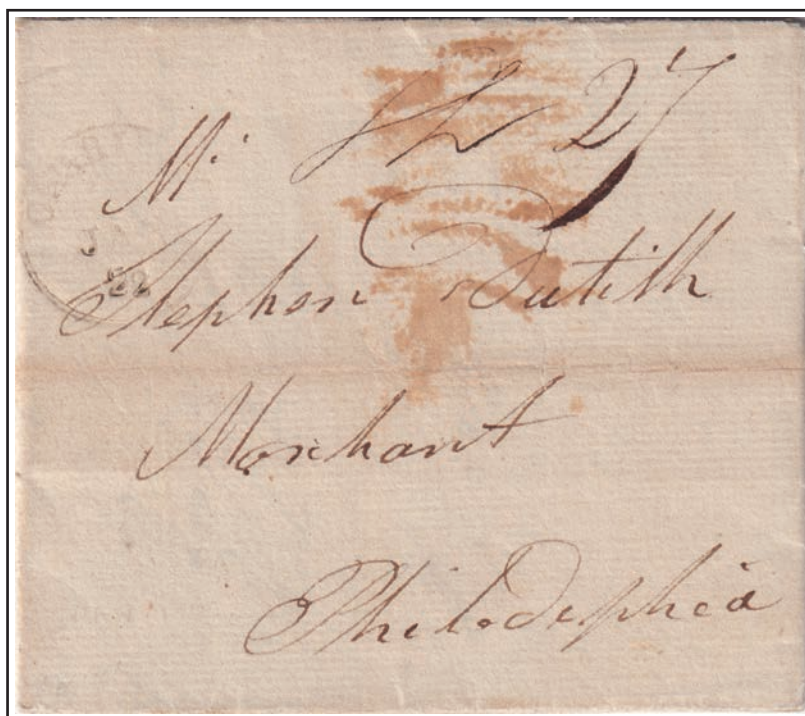 Sh 27
Mr.
Stephen Dutilh
Merchant
Philadephia